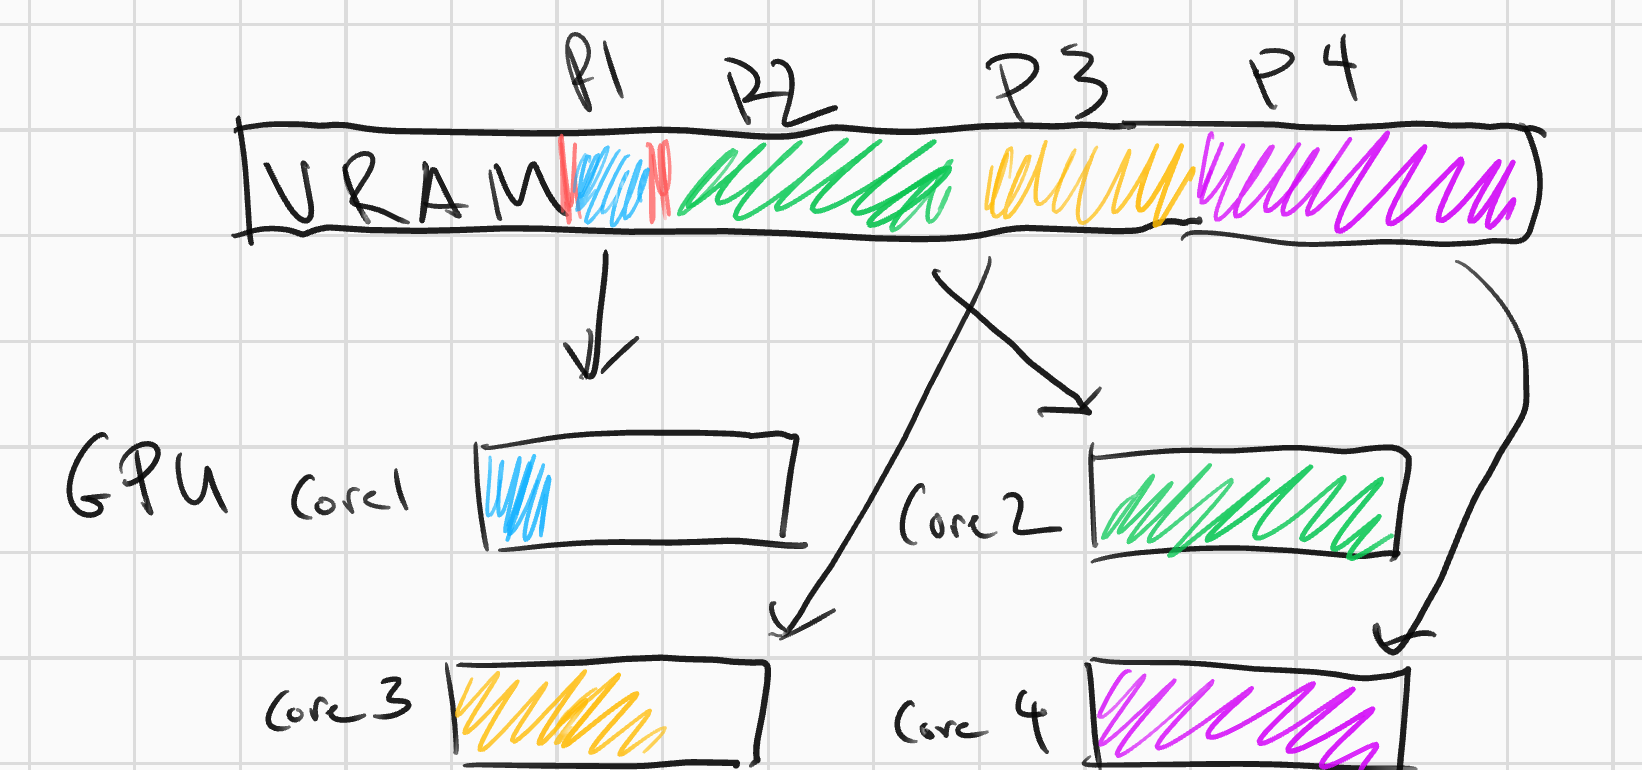 P1 P2 P3 P4
VRAM
GPU Core1 Core2
Core3 Core 4